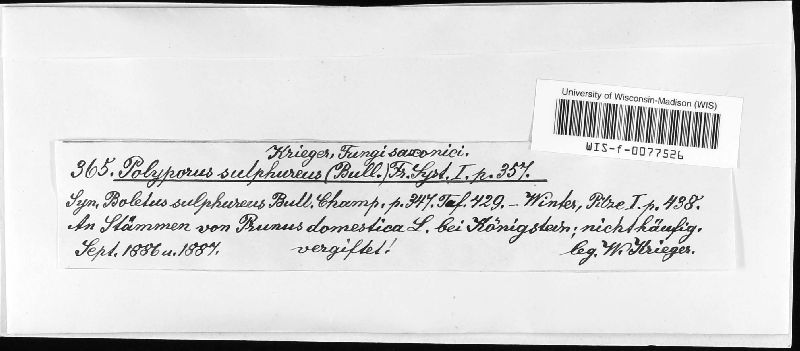 University of Wisconsin-Madison (WIS)
WIS-f-0077526
Krieger, Fungi saxonici.
365. Polyporus sulphureus (Bull.) Fr. Syst. I. p. 357.
Syn. Boletus sulphureus Bull. Champ. p. 347. Taf. 429. – Winter, Pilze I. p. 438.
An Stämmen von Prunus domestica L. bei Königstein; nicht häufig.
Sept. 1886 u. 1887. vergiftet! leg. W. Krieger.